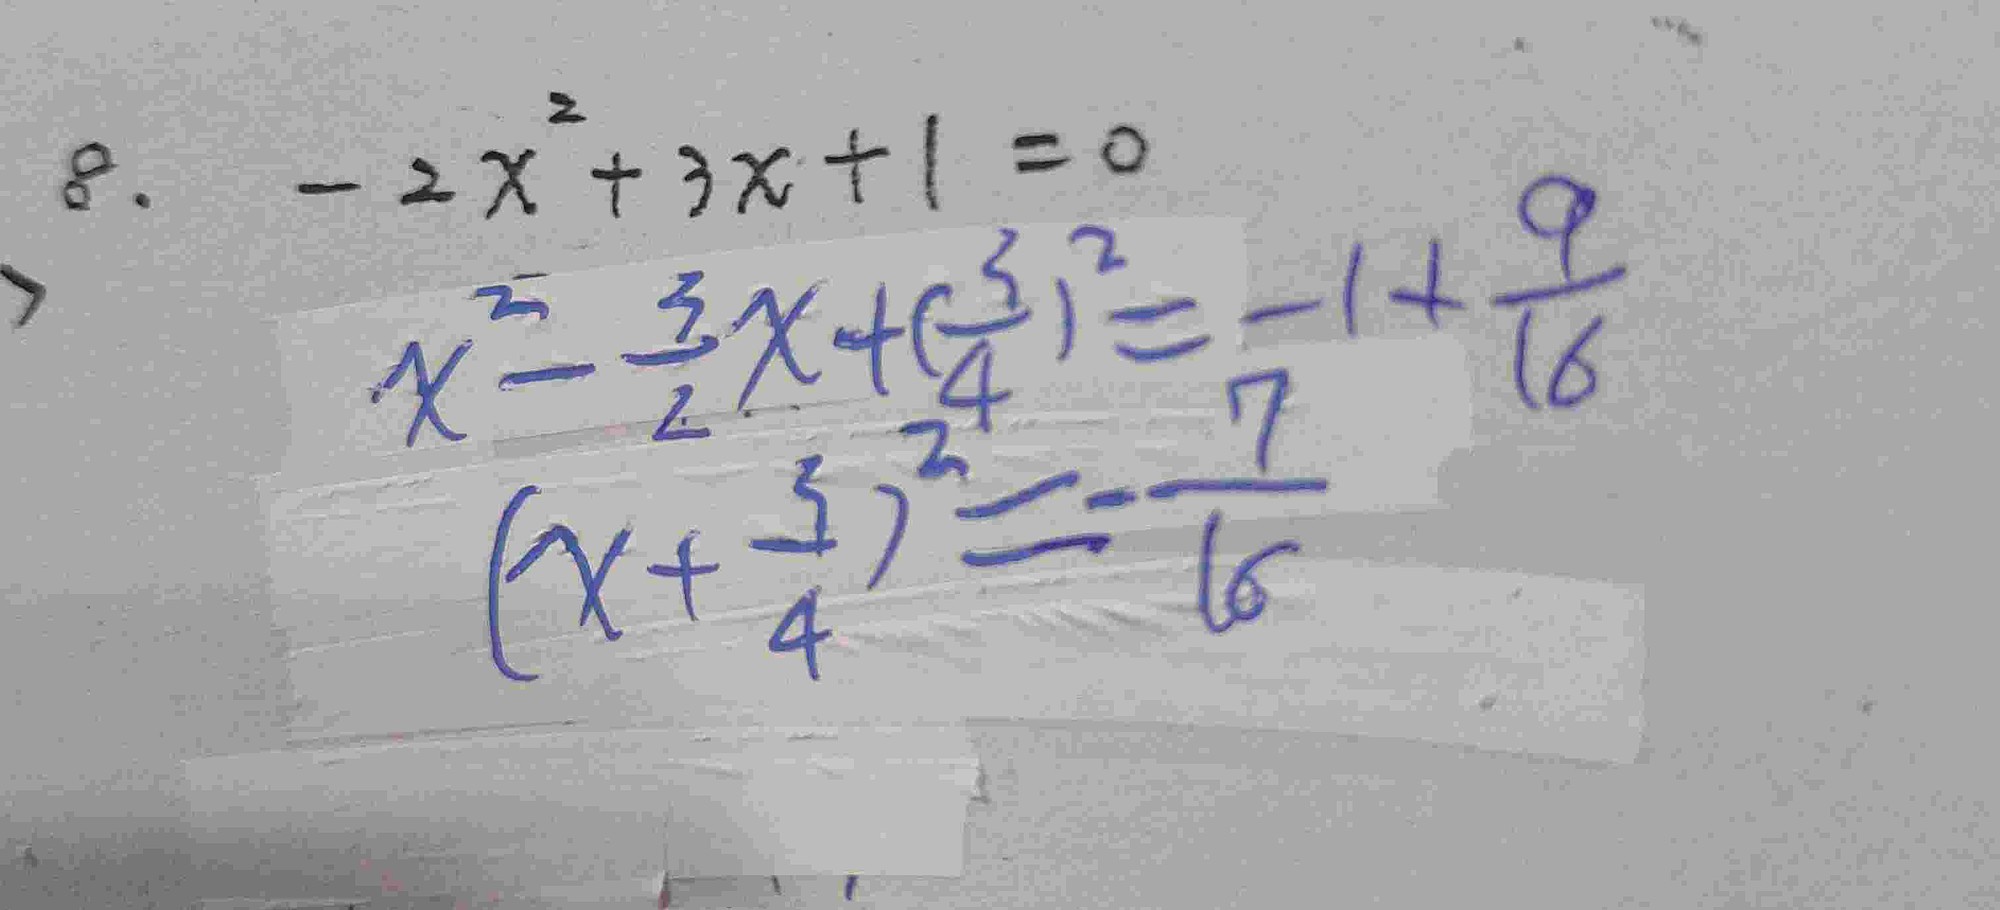 8. -2x² + 3x + 1 = 0
x² - 3/2 x + (3/4)² = -1 + 9/16
(x + 3/4)² = -7/16